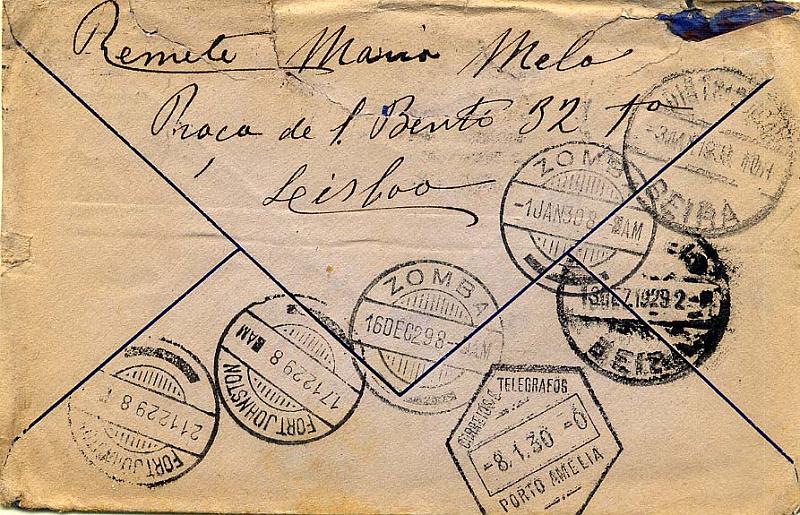 Remete Mario Melo
Praça de S. Bento 32 1º
Lisboa
BEIRA
ZOMBA
-1 JAN 30 8- AM
13 DEZ. 1929 2-
BEIRA
ZOMBA
16 DEC 29 8- AM
FORT JOHNSTON
17 12 29 8 AM
FORT JOHN
21 12 29 8
CORREIOS E TELEGRAFOS
-8.1.30 -6
PORTO AMELIA